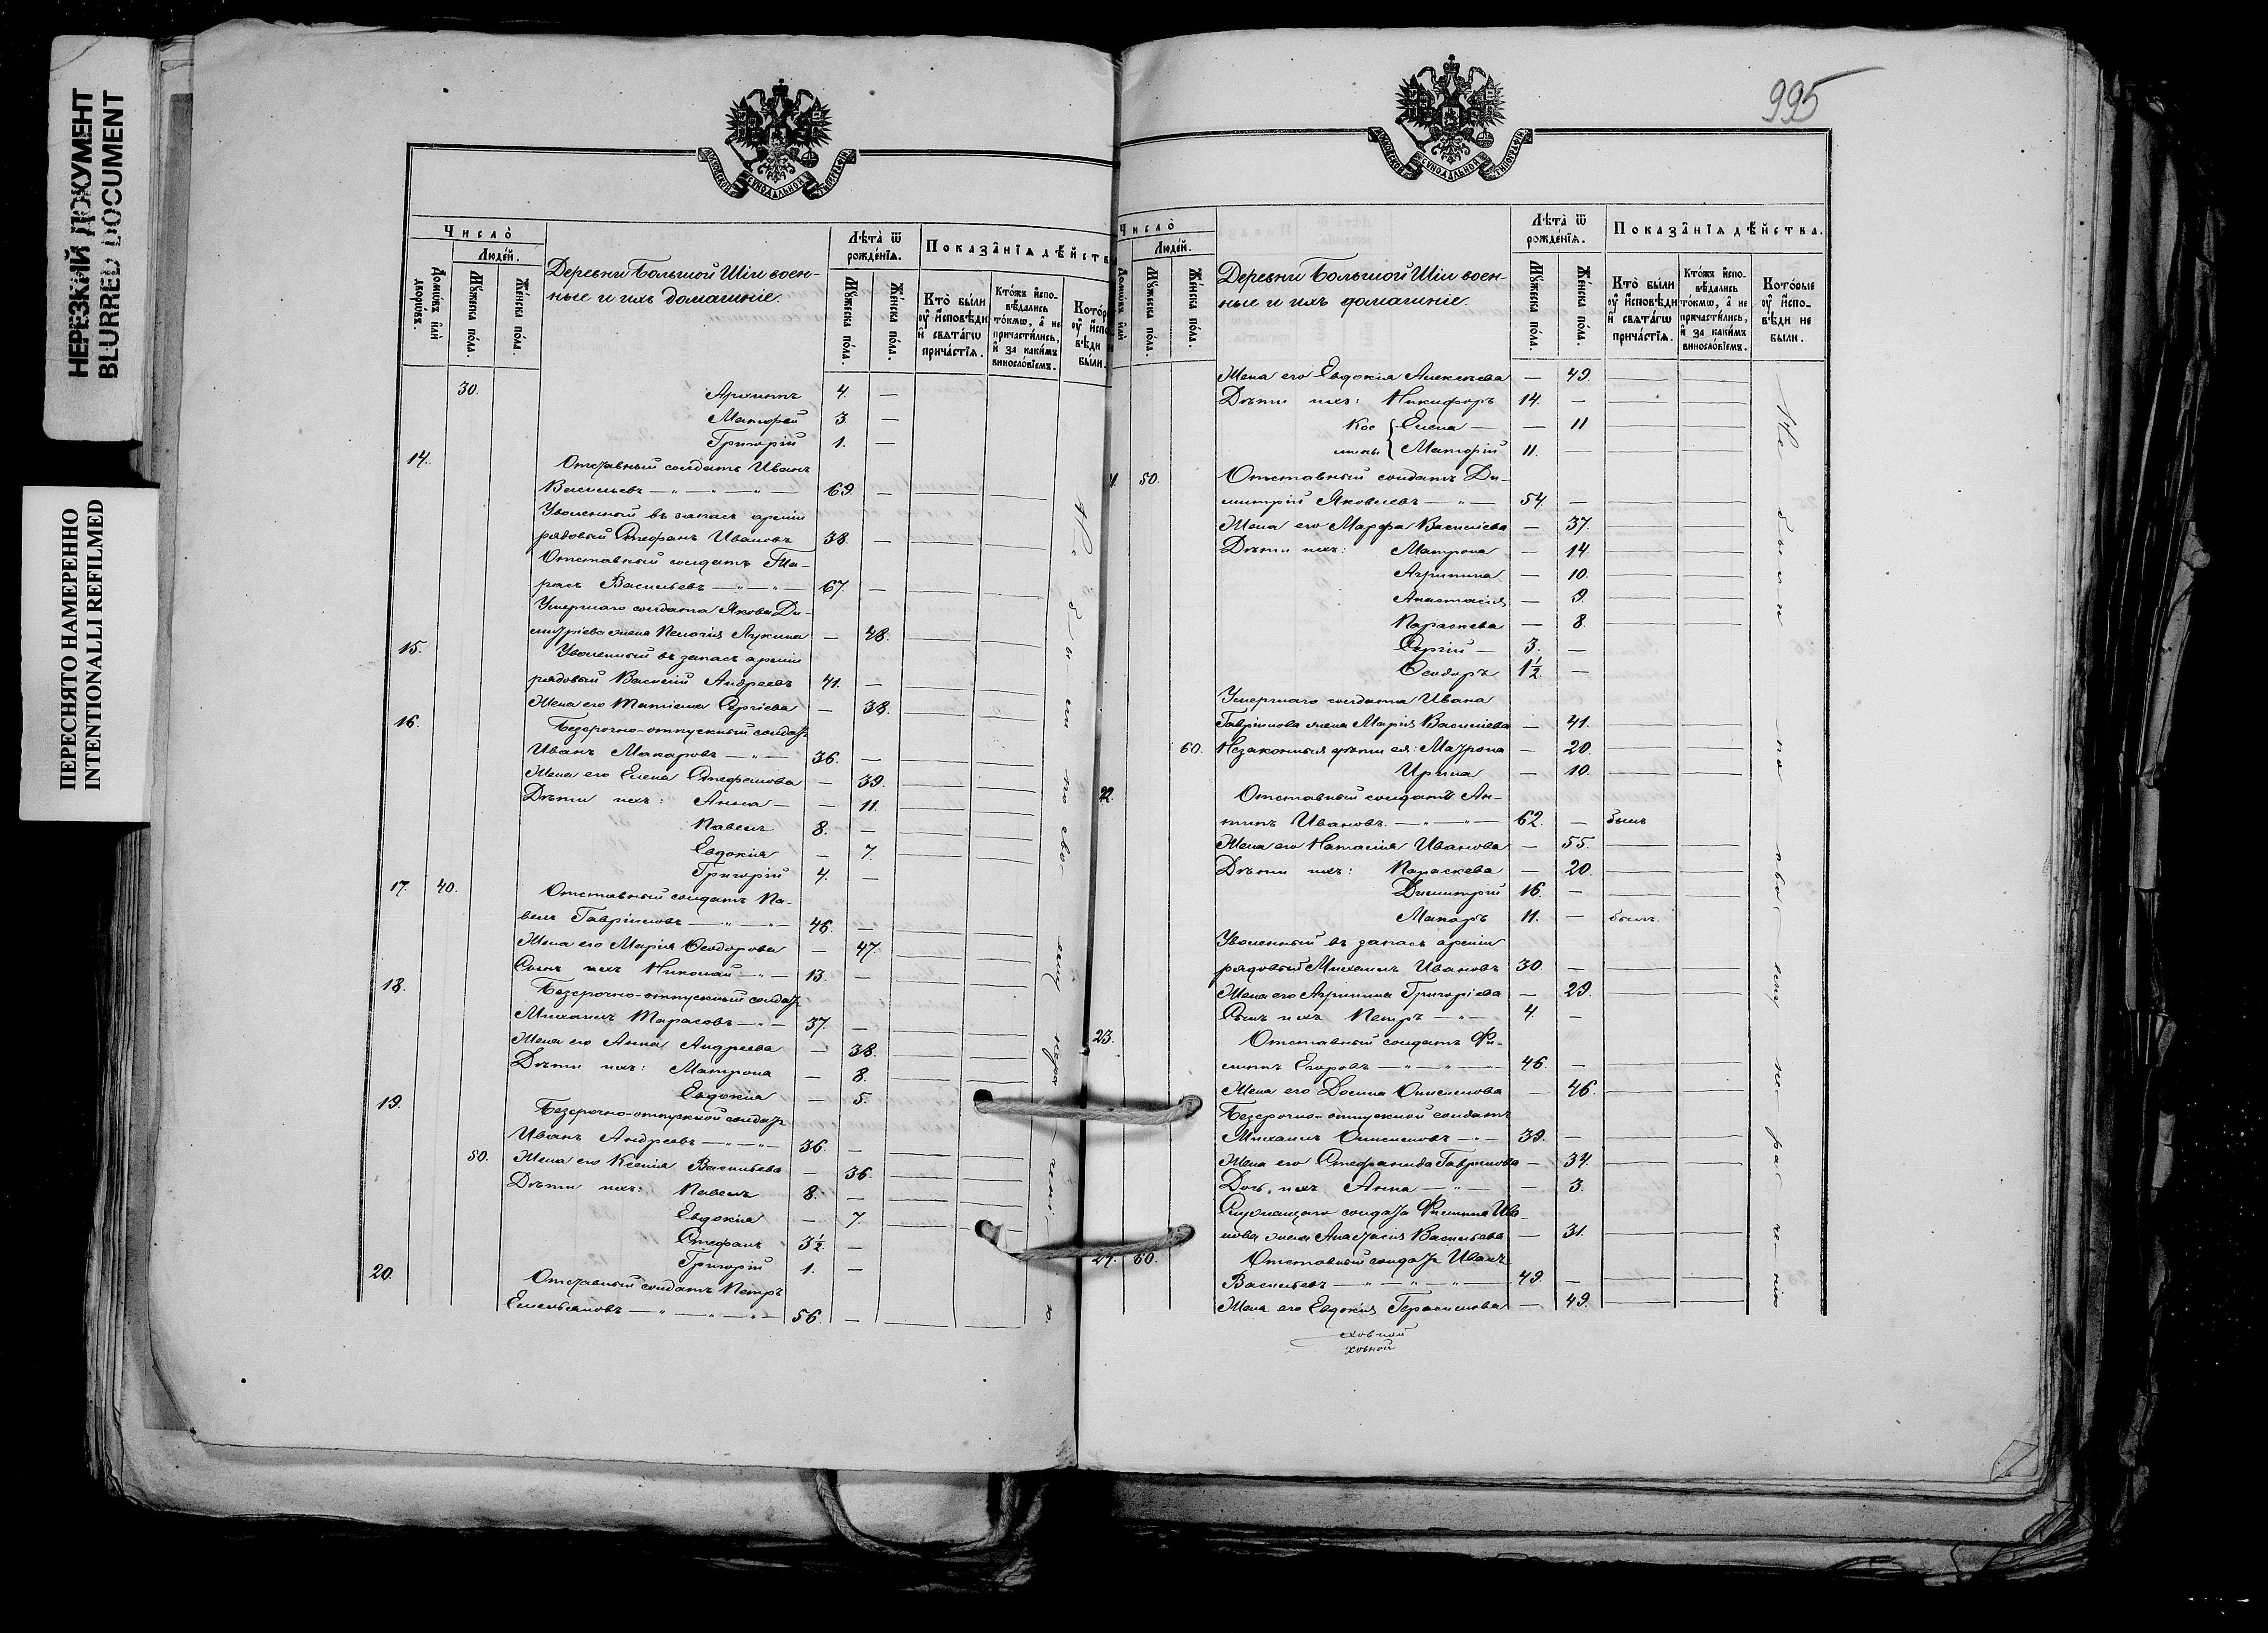 НЕРЕЗКИЙ ДОКУМЕНТ
BLURRED DOCUMENT
ПЕРЕСНЯТО НАМЕРЕННО
INTENTIONALLI REFILMED
МОСКОВСКОЙ СѴНОДАЛЬНОЙ ТИПОГРАФІИ
Число̀
Люде́й.
Домѡ́въ и҆лѝ дворѡ́въ.
Мꙋ́жеска по́ла.
Же́нска по́ла.
Деревни Большой Шіи воен-
ные и ихъ домашніе.
Лѣ́та ѿ рожде́нїѧ.
Мꙋ́жеска по́ла.
Же́нска по́ла.
Показа̑нїѧ дѣ́йств
Кто̀ бы́ли оу҆ и҆сповѣ́ди и҆ свѧта́гѡ прича́стїѧ.
Кто́жъ и҆спо-вѣ́дались то́кмѡ, а҆ не причасти́лись, и҆ за каки́мъ винословїемъ.
30. Архипъ 4. —
Матфей 3. —
Григорій 1. —
14. Отставный солдатъ Иванъ
Васильевъ — " — " — 69. —
Уволенный въ запасъ арміи
рядовый Стефанъ Ивановъ 38. —
Отставный солдатъ Та-
расъ Васильевъ — " — 67. —
Умершаго солдата Якова Ди-
митріева жена Пелагія Лукина — 48.
15. Уволенный въ запасъ арміи
рядовый Василій Андреевъ 41. —
Жена его Татіана Сергіева — 38.
16. Безсрочно-отпускный солдатъ
Иванъ Макаровъ — " — 36. —
Жена его Елена Стефанова — 39.
Дѣти ихъ: Анна — — 11.
Павелъ 8. —
Евдокія — 7.
Григорій 4. —
17. 40. Отставный солдатъ Па-
велъ Гавріиловъ — " — " — 46. —
Жена его Марія Ѳеодорова — 47.
Сынъ ихъ Николай — " — 13. —
18. Безсрочно-отпускный солдатъ
Михаилъ Тарасовъ — " — 37. —
Жена его Анна Андреева — 38.
Дѣти ихъ: Матрона — 8.
Евдокія — 5.
19. Безсрочно-отпускной солдатъ
Иванъ Андреевъ — " — " — 36. —
50. Жена его Ксенія Васильева — 36.
Дѣти ихъ: Павелъ 8. —
Евдокія — 7.
Стефанъ 3½. —
Григорій 1. —
20. Отставный солдатъ Петръ
Емельяновъ — " — " — 56. —
Не были по своему нера- — ченію.
995
МОСКОВСКОЙ СѴНОДАЛЬНОЙ ТИПОГРАФІИ
Число̀
Люде́й.
Домѡ́въ и҆лѝ
Мꙋ́жеска по́ла.
Же́нска по́ла.
Деревни Большой Шіи воен-
ные и ихъ домашніе.
Лѣ́та ѿ рожде́нїѧ.
Мꙋ́жеска по́ла.
Же́нска по́ла.
Показа̑нїѧ дѣ́йства.
Кто̀ бы́ли оу҆ и҆сповѣ́ди и҆ свѧта́гѡ прича́стїѧ.
Кто́жъ и҆спо-вѣ́дались то́кмѡ, а҆ не причасти́лись, и҆ за каки́мъ винословїемъ.
Кото́рые оу҆ и҆спо-вѣ́ди не бы́ли.
Жена его Евдокія Алексѣева — 49.
Дѣти ихъ: Никифоръ 14. —
Елена — — 11
Матфій 11. —
50. Отставный солдатъ Ди-
митрій Яковлевъ — " — 54. —
Жена его Марфа Василіева — 37.
Дѣти ихъ: Матрона — 14
Агрипина — 10.
Анастасія — 9.
Параскева — 8.
Сергій — 3. —
Ѳеодоръ 1½. —
Умершаго солдата Ивана
Гавріилова жена Марія Василіева — 41.
60. Незаконныя дѣти ея: Матрона — 20.
Ирина — 10.
22. Отставный солдатъ Ан-
типъ Ивановъ. — " — " — 62. — былъ
Жена его Наталія Иванова — 55.
Дѣти ихъ: Параскева — 20.
Димитрій 16. —
Макаръ 11. — былъ.
Уволенный въ запасъ арміи
рядовый Михаилъ Ивановъ 30. —
Жена его Агрипина Григоріева — 29.
Сынъ ихъ Петръ — " — 4. —
23. Отставный солдатъ Фи-
липъ Егоровъ — " — " — 46. —
Жена его Домна Онисимова — 46.
Безсрочно-отпускной солдатъ
Михаилъ Онисимовъ — " — 39. —
Жена его Стефанида Гаврилова — 34.
Дочь ихъ Анна — " — — 3.
Служащаго солдата Филиппа Ива-
нова жена Анастасія Васильева — 31.
24. 60. Отставный солдатъ Иванъ
Васильевъ — " — " — " — 49. —
Жена его Евдокія Герасимова — 49.
Не были по своему не ра- че- нію
ховной